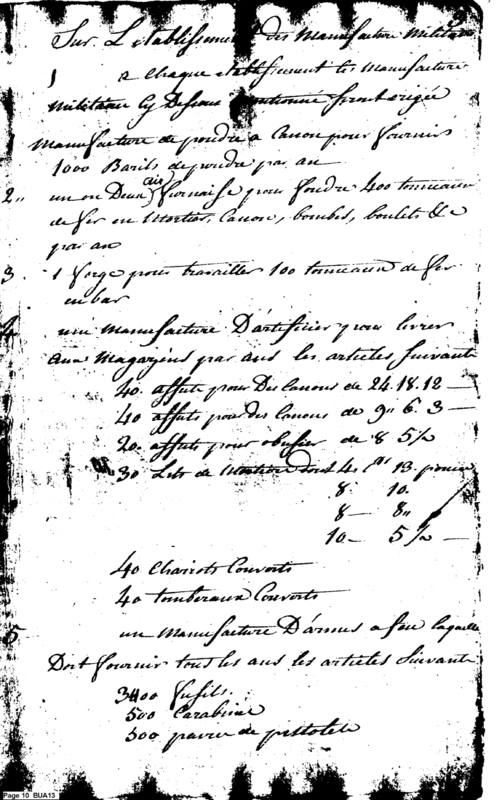 Sur L'etablissement des Manufacture Militaire
1 a chaque etablissement les Manufacture
Militaire cy Dessous mentionné seront erigée
Manufacture de poudre a Canon pour fournir
1000 Barils de poudre par an
2,, un ou Deux (air) fournaise pour fondre 400 tonneaux
de fer en Mortier, Canon, bombes, boulets &c
par an
3. 1 forge pour travailler 100 tonneaux de fer
en bar
4 une Manufacture D'artificier pour livrer
aux Magazins par ans les articles suivante
40. affuts pour Des Canons de 24. 18. 12 —
40 affuts pour des Canons de 9,, 6. 3 —
20. affuts pour obusier de 8 5½
30 Lits de Mortiere dont 4 13. pouce
8. 10.
8 — 8,,
10 — 5½ —
40 Chariots Couverts
40 tomberaux Couverts
5 un Manufacture D'armes a feu laquelle
Doit fournir tous les ans les articles Suivante
3400 fusils.
500 Carabine
500 paires de pistolets
Page 10 BUA13